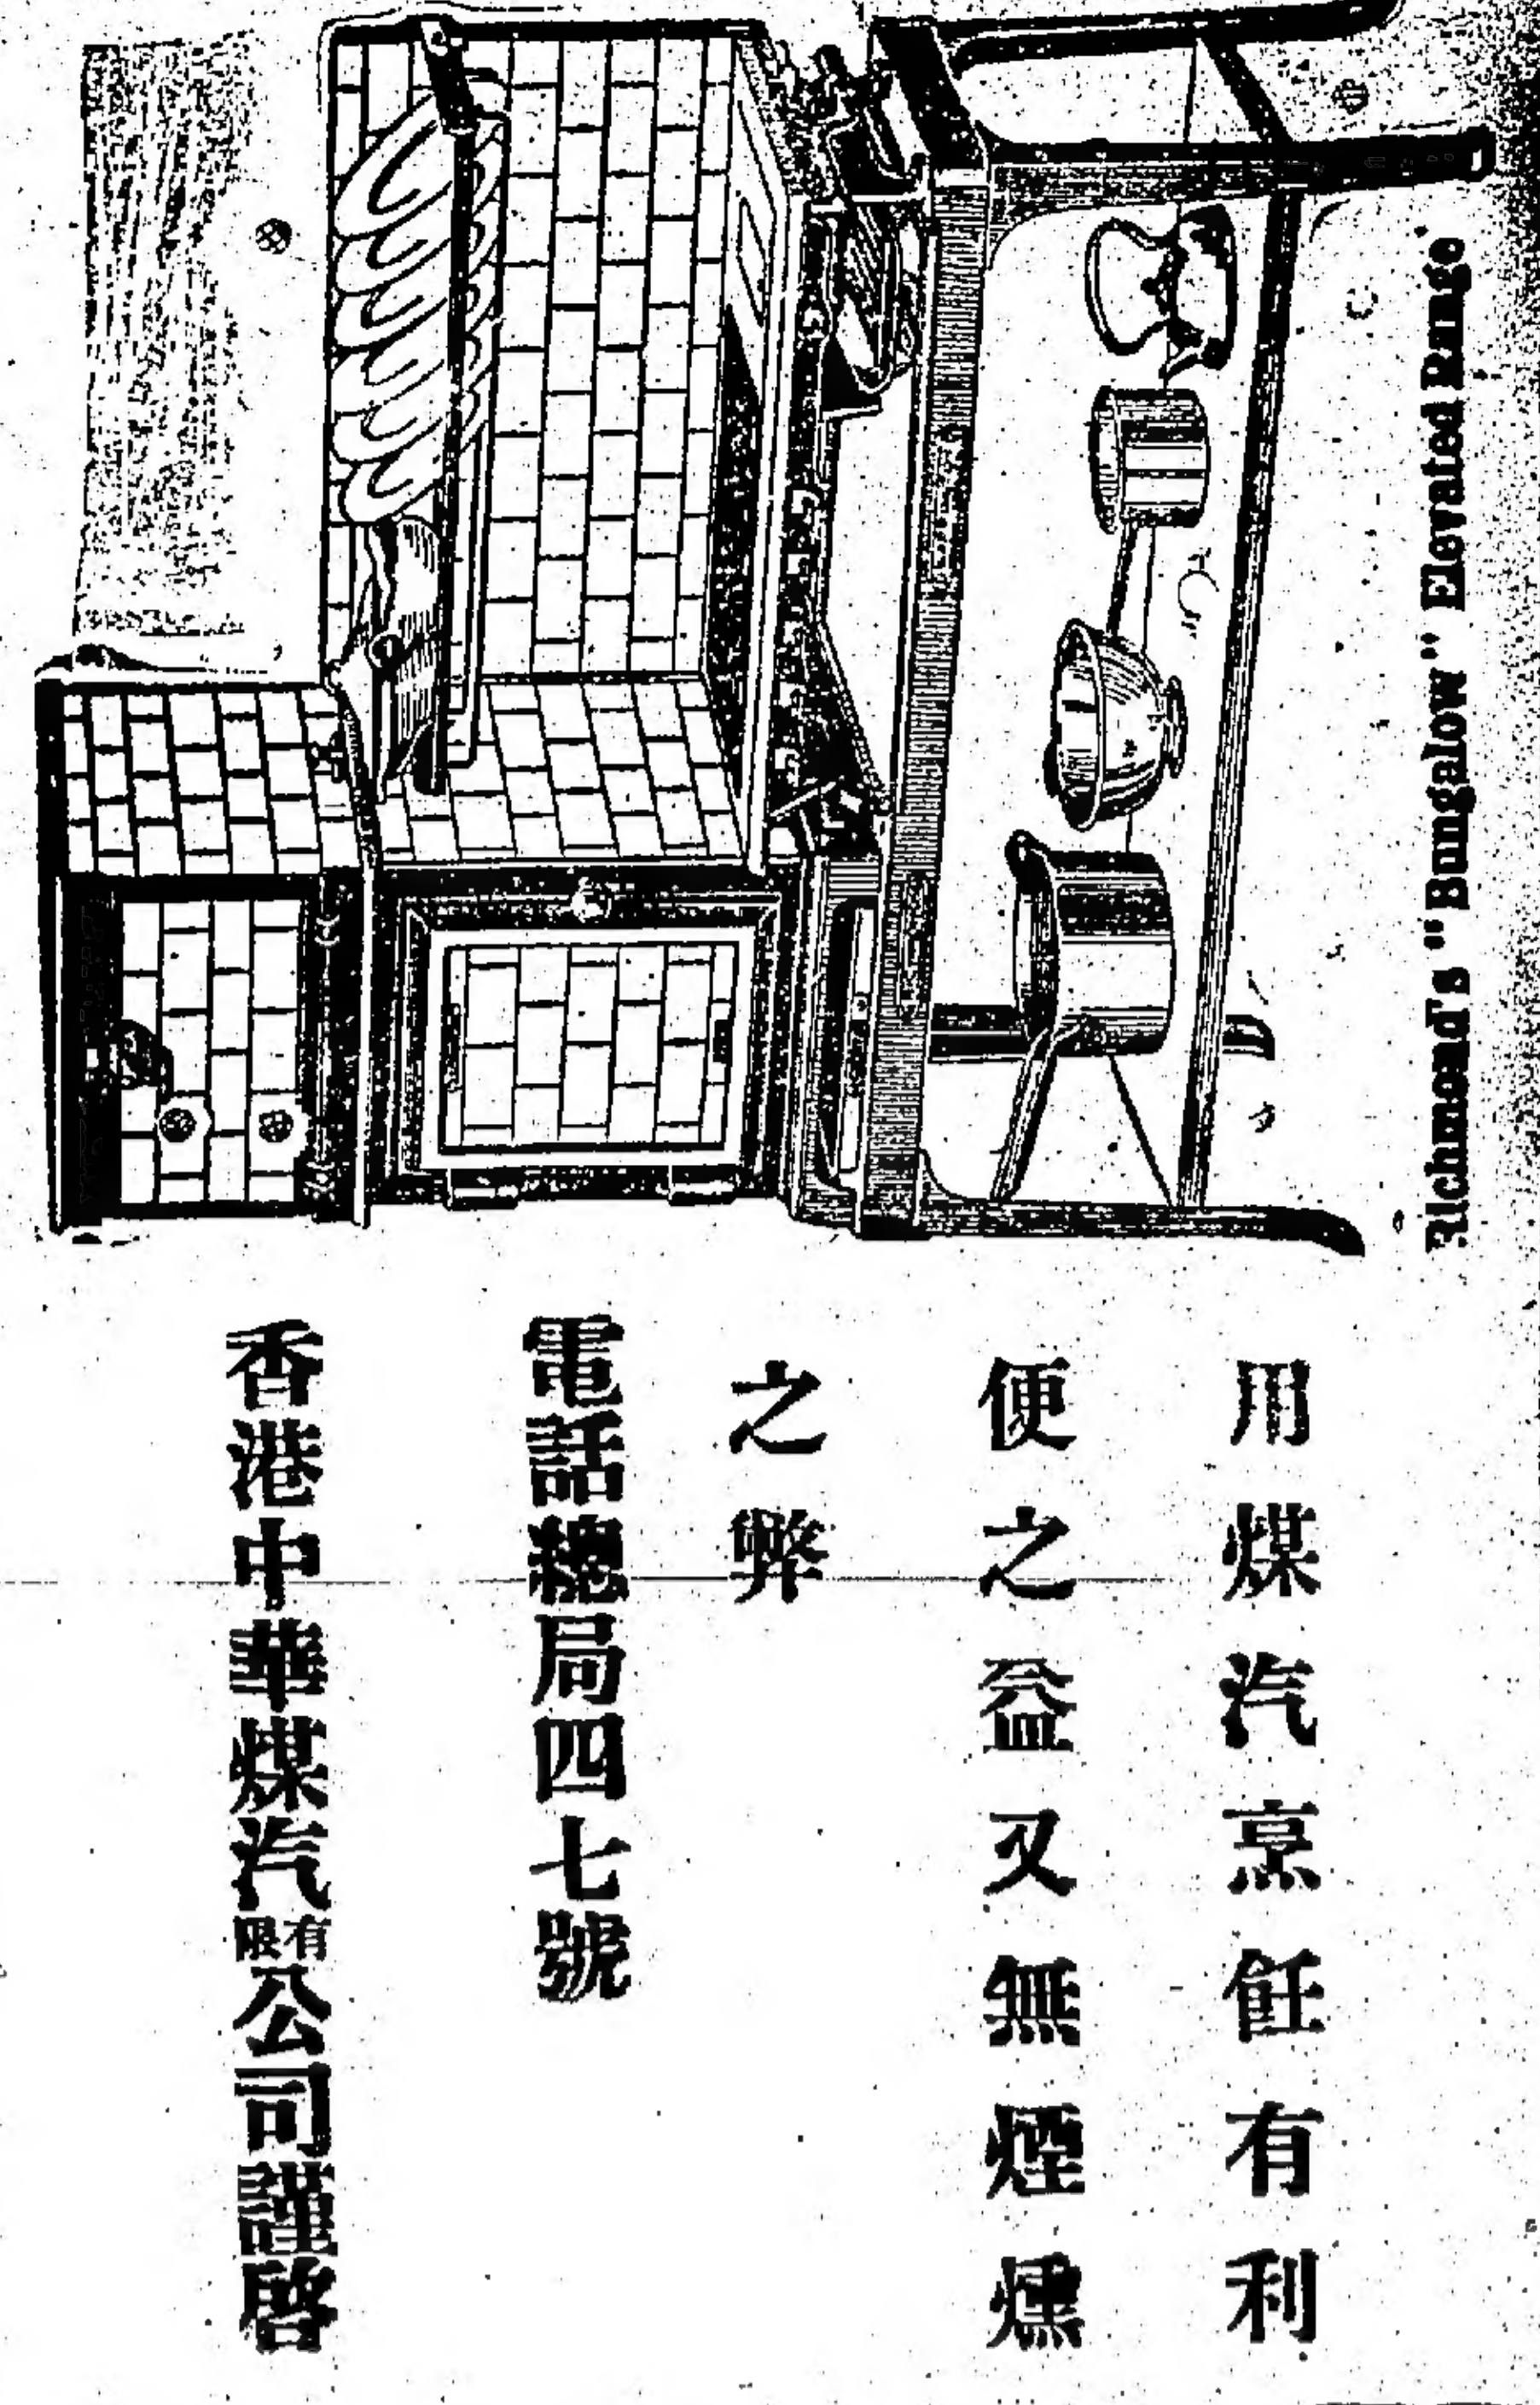 Richmond's "Bungalow" Elevated Range
用煤汽烹飪有利
便之益又無煙燻
之弊
電話總局四七號
香港中華煤汽有限公司謹啓